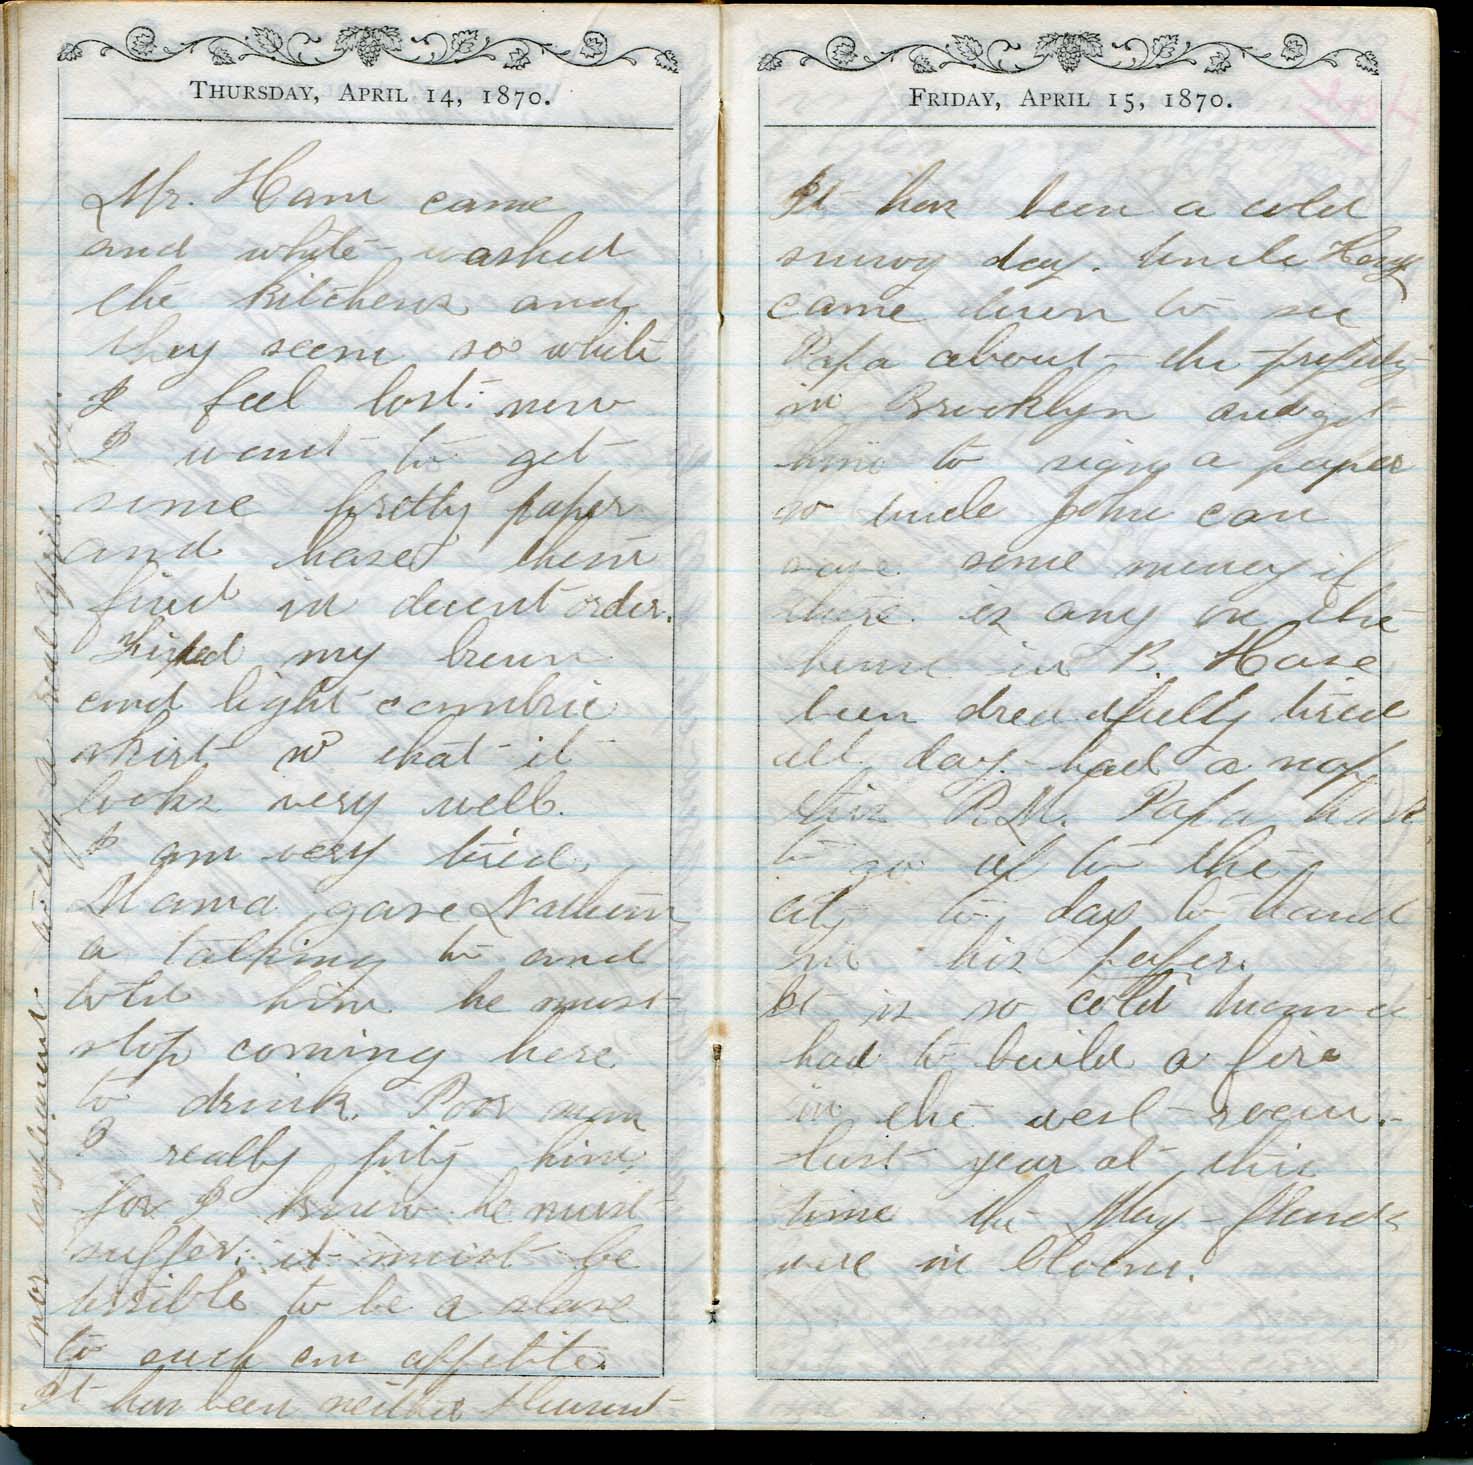 THURSDAY, APRIL 14, 1870.
Mr. Ham came
and white-washed
the kitchens and
they seem so white
I feel lost: now
I want to get
some pretty paper
and have them
fixed in decent order.
Fixed my brown
and light cambric
skirt so that it
looks very well.
I am very tired.
Mama gave
a talking to and
told him he must
stop coming here
to drink. Poor man
I really pity him,
for I know he must
suffer; it must be
terrible to be a slave
to such an appetite.
It has been neither pleasant
nor unpleasant to-day, a real April day.
FRIDAY, APRIL 15, 1870.
It has been a cold
snowy day. Uncle
came down to see
Papa about the property
in Brooklyn and got
him to sign a paper
so Uncle John can
some money if
there is any on the
house in B. Have
been dreadfully tired
all day. had a nap
this P.M. Papa had
to go up to the
city to day to hand
in his paper.
It is so cold Mama
had to build a fire
in the west-room.-
last year at this
time the May-flowers
were in bloom.